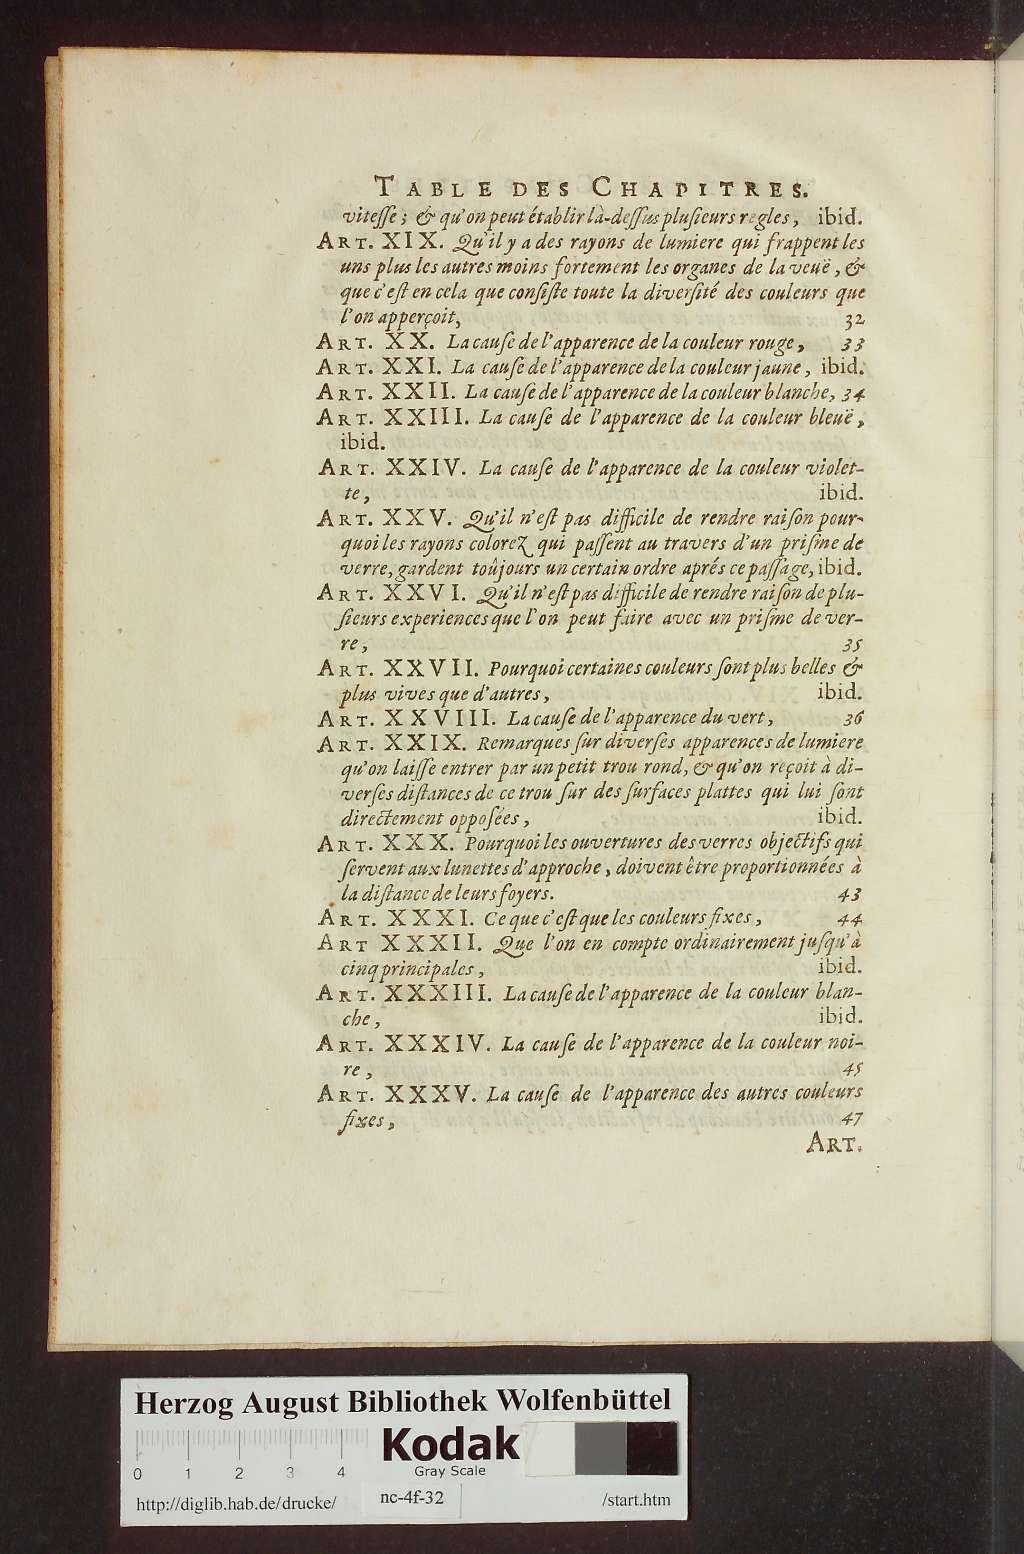 TABLE DES CHAPITRES.
vitesse; & qu'on peut établir là-dessus plusieurs regles, ibid.
ART. XIX. Qu'il y a des rayons de lumiere qui frappent les
uns plus les autres moins fortement les organes de la veuë, &
que c'est en cela que consiste toute la diversité des couleurs que
l'on apperçoit, 32
ART. XX. La cause de l'apparence de la couleur rouge, 33
ART. XXI. La cause de l'apparence de la couleur jaune, ibid.
ART. XXII. La cause de l'apparence de la couleur blanche, 34
ART. XXIII. La cause de l'apparence de la couleur bleuë,
ibid.
ART. XXIV. La cause de l'apparence de la couleur violet-
te, ibid.
ART. XXV. Qu'il n'est pas difficile de rendre raison pour-
quoi les rayons colorez qui passent au travers d'un prisme de
verre, gardent toûjours un certain ordre aprés ce passage, ibid.
ART. XXVI. Qu'il n'est pas difficile de rendre raison de plu-
sieurs experiences que l'on peut faire avec un prisme de ver-
re, 35
ART. XXVII. Pourquoi certaines couleurs sont plus belles &
plus vives que d'autres, ibid.
ART. XXVIII. La cause de l'apparence du vert, 36
ART. XXIX. Remarques sur diverses apparences de lumiere
qu'on laisse entrer par un petit trou rond, & qu'on reçoit à di-
verses distances de ce trou sur des surfaces plattes qui lui sont
directement opposées, ibid.
ART. XXX. Pourquoi les ouvertures des verres objectifs qui
servent aux lunettes d'approche, doivent être proportionnées à
la distance de leurs foyers. 43
ART. XXXI. Ce que c'est que les couleurs fixes, 44
ART XXXII. Que l'on en compte ordinairement jusqu'à
cinq principales, ibid.
ART. XXXIII. La cause de l'apparence de la couleur blan-
che, ibid.
ART. XXXIV. La cause de l'apparence de la couleur noi-
re, 45
ART. XXXV. La cause de l'apparence des autres couleurs
fixes, 47
ART.
Herzog August Bibliothek Wolfenbüttel
Kodak
Gray Scale
0 1 2 3 4
http://diglib.hab.de/drucke/ nc-4f-32 /start.htm